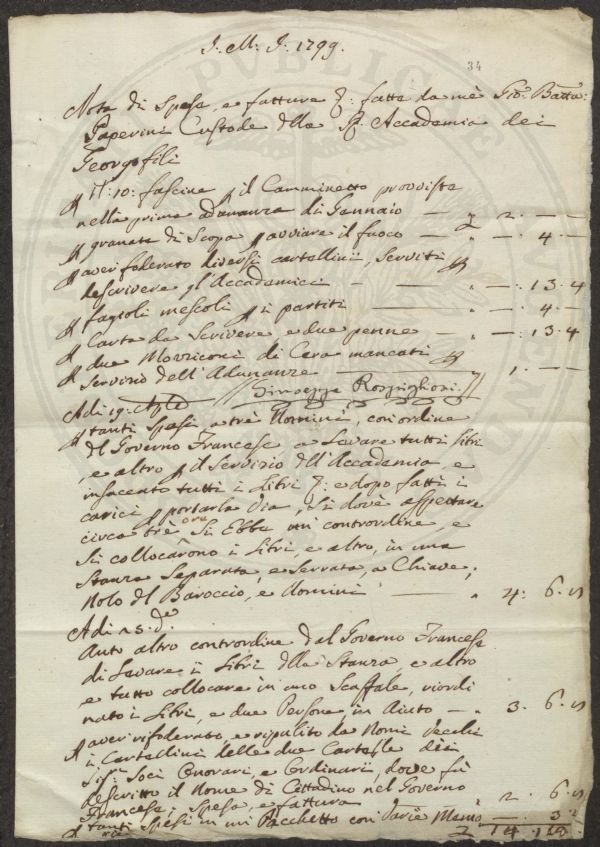 J. M. J. 1799.
34
Nota di Spese, e fatture &: fatte da mè Gio: Batta:
Paperini Custode della R: Accademia dei
Georgofili
P it: 10: fascine p il Camminetto provviste
nella prima adunanza di Gennaio — „ 2. — —
P granata di Scopa p avviare il fuoco — „ —. 4. —
P aver foderato diversi cartellini, serviti
descrivere gl'Accademici — „ —. 13. 4
P fagioli mescoli p i partiti — „ —. 4. —
P Carta da Scrivere e due penne — „ —. 13. 4
P due Morziconi di Cera mancati
P Servizio dell'Adunanze — „ 1. — —
Giuseppe Rospiglioni
Adi 19: Aple
P tanti spesi a trè Uomini, con ordine
del Governo Francese a Levare tutti i libri
, e altro p il Servizio dell'Accademia, e
insaccato tutti i Libri &: e dopo fatti i
carici p portarla via, si dovè aspettare
circa trè ore si Ebbe un controrodine, e
si collocarono i Libri, e altro, in una
Stanza Separata, e Serrata, a Chiave,
Nolo del Baroccio, e Uomini — „ 4: 6. 8
Adi 25. do
Auto altro controrodine dal Governo Francese
di Levare i Libri della Stanza, e altro
e tutto collocare in uno Scaffale, riordi
nato i Libri, e due Persone in Aiuto — „ 3. 6. 8
P aver rifoderato, e ripulito da Nomi Vecchi
i Cartellini delle due Cartelle dei
Sigri Soci Onorari, e Ordinarii, dove fù
descritto il Nome di Cittadino nel Governo
Francese, spesa, e fattura — „ 2. 6. 8
P tanti spesi in un Pacchetto con Varie Memo — 3
14. 18